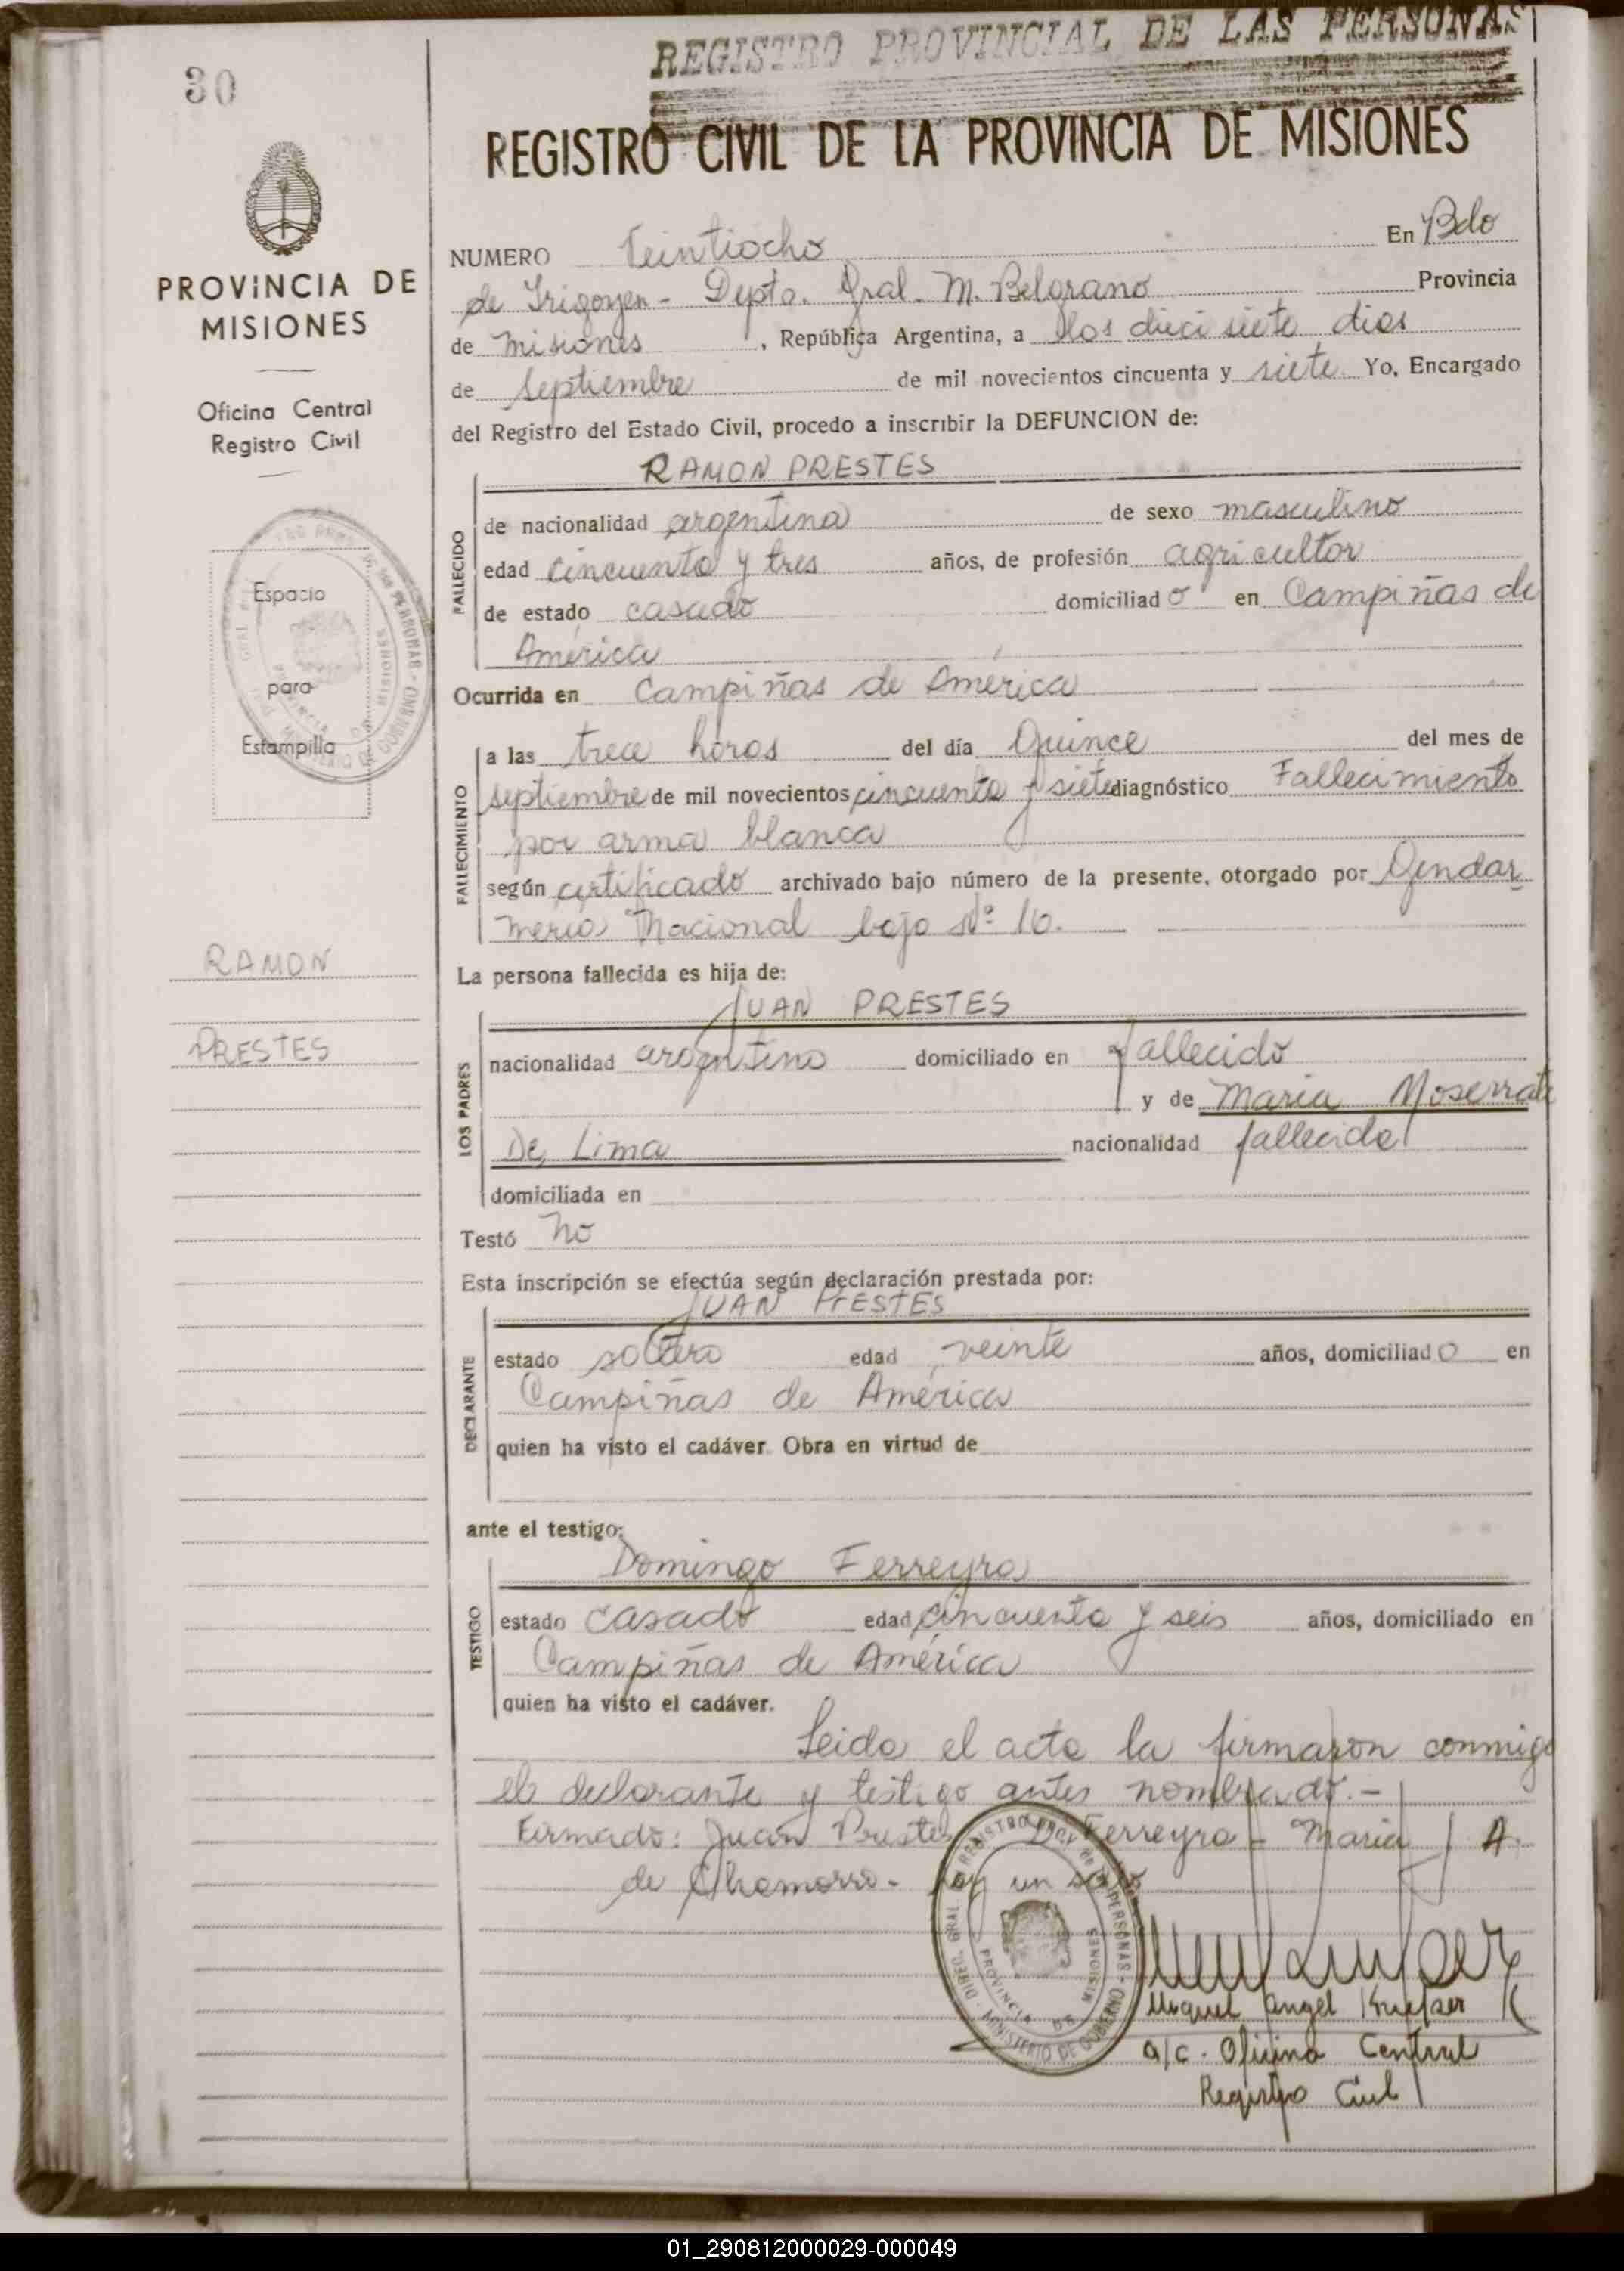 REGISTRO PROVINCIAL DE LAS PERSONAS
30
REGISTRO CIVIL DE LA PROVINCIA DE MISIONES
PROVINCIA DE
MISIONES
Oficina Central
Registro Civil
Espacio
para
Estampilla
RAMON
PRESTES
NUMERO Veintiocho En Bdo
de Irigoyen - Depto. Gral. M. Belgrano Provincia
de Misiones, República Argentina, a los dieci siete dias
de Septiembre de mil novecientos cincuenta y siete Yo, Encargado
del Registro del Estado Civil, procedo a inscribir la DEFUNCION de:
RAMON PRESTES
FALLECIDO
de nacionalidad argentina de sexo masculino
edad cincuenta y tres años, de profesión agricultor
de estado casado domiciliado en Campiñas de
América
Ocurrida en Campiñas de América
FALLECIMIENTO
a las trece horas del día Quince del mes de
septiembre de mil novecientos cincuenta y siete diagnóstico Fallecimiento
por arma blanca
según certificado archivado bajo número de la presente, otorgado por Gendar
meria Nacional bajo Nº 10.
La persona fallecida es hija de:
JUAN PRESTES
LOS PADRES
nacionalidad argentino domiciliado en fallecido
y de Maria Moserrate
De Lima nacionalidad fallecida
domiciliada en
Testó No
Esta inscripción se efectúa según declaración prestada por:
JUAN PrESTES
DECLARANTE
estado soltero edad veinte años, domiciliado en
Campiñas de América
quien ha visto el cadáver. Obra en virtud de
ante el testigo:
Domingo Ferreyra
TESTIGO
estado casado edad cincuenta y seis años, domiciliado en
Campiñas de América
quien ha visto el cadáver.
Leida el acta la firmaron conmigo
el declarante y testigo antes nombrado.-
Firmado: Juan Prestes D. Ferreyra - Maria A.
de Chamorro - hay un sello
DIREC. GRAL. REGISTRO PROV. DE LAS PERSONAS - MINISTERIO DE GOBIERNO
PROVINCIA DE MISIONES
Miguel Angel
a/c. Oficina Central
Registro Civil
01_290812000029-000049